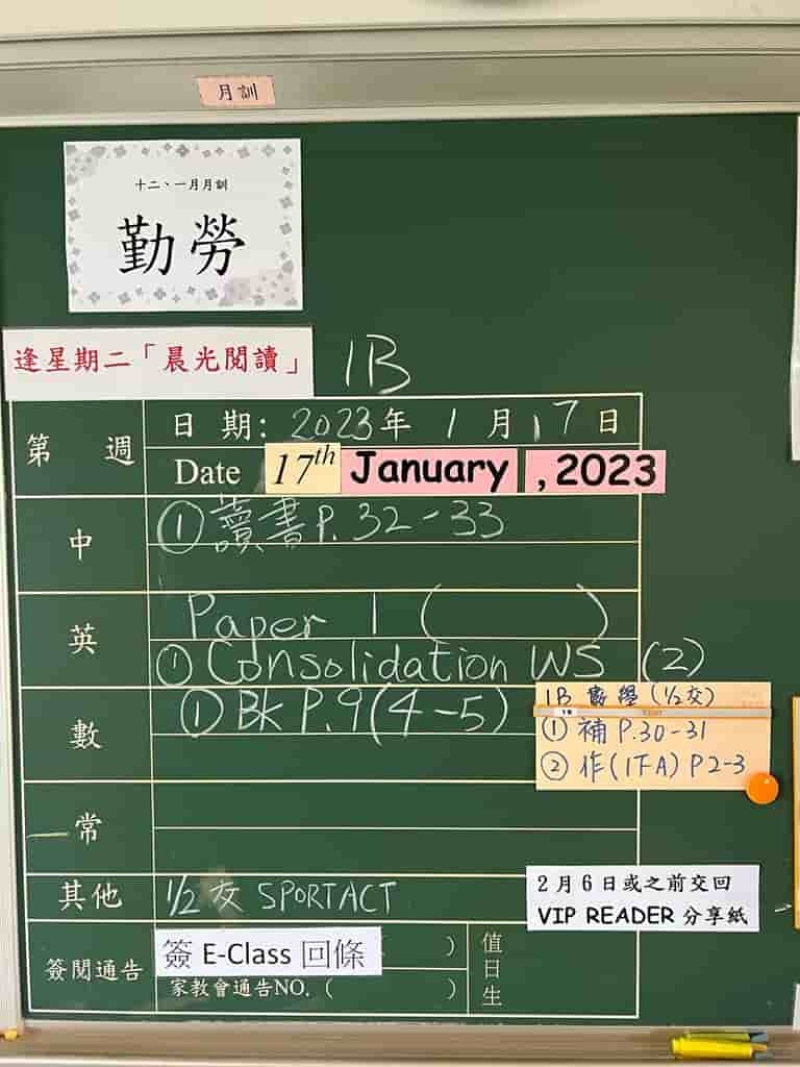 月訓
十二、一月月訓
勤勞
逢星期二「晨光閱讀」
1B
第 週
日 期: 2023年 1 月 17 日
Date 17th January , 2023
中
① 讀書 P.32-33
英
Paper 1 ( )
① Consolidation WS (2)
數
① Bk P.9(4-5)
1B 數學 (1/2交)
① 補 P.30-31
② 作(1下A) P2-3
常
其他
1/2 交 SPORTACT
2月6日或之前交回
VIP READER 分享紙
簽閱通告
簽 E-Class 回條 )
家教會通告NO. ( )
值日生